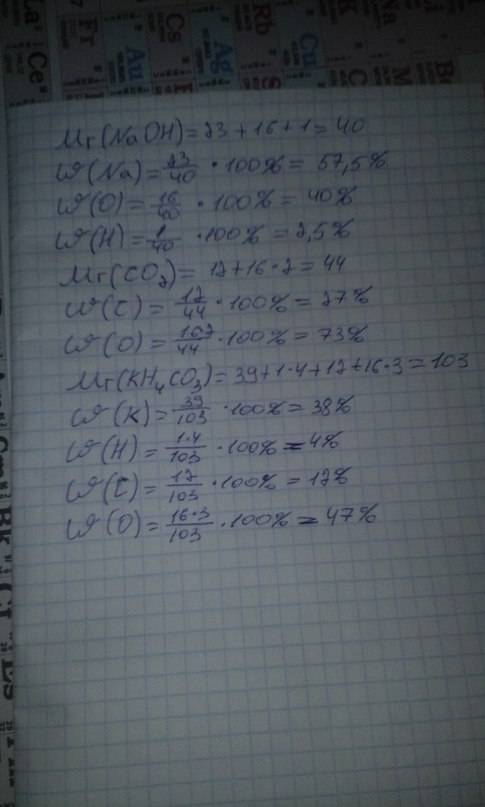 La Fr Cs Rb Na
Ce Au Ag Cu
Mr(NaOH)=23+16+1=40
ω(Na)=23/40·100%=57,5%
ω(O)=16/40·100%=40%
ω(H)=1/40·100%=2,5%
Mr(CO2)=12+16·2=44
ω(C)=12/44·100%=27%
ω(O)=16·2/44·100%=73%
Mr(KH4CO3)=39+1·4+12+16·3=103
ω(K)=39/103·100%=38%
ω(H)=1·4/103·100%=4%
ω(C)=12/103·100%=12%
ω(O)=16·3/103·100%=47%